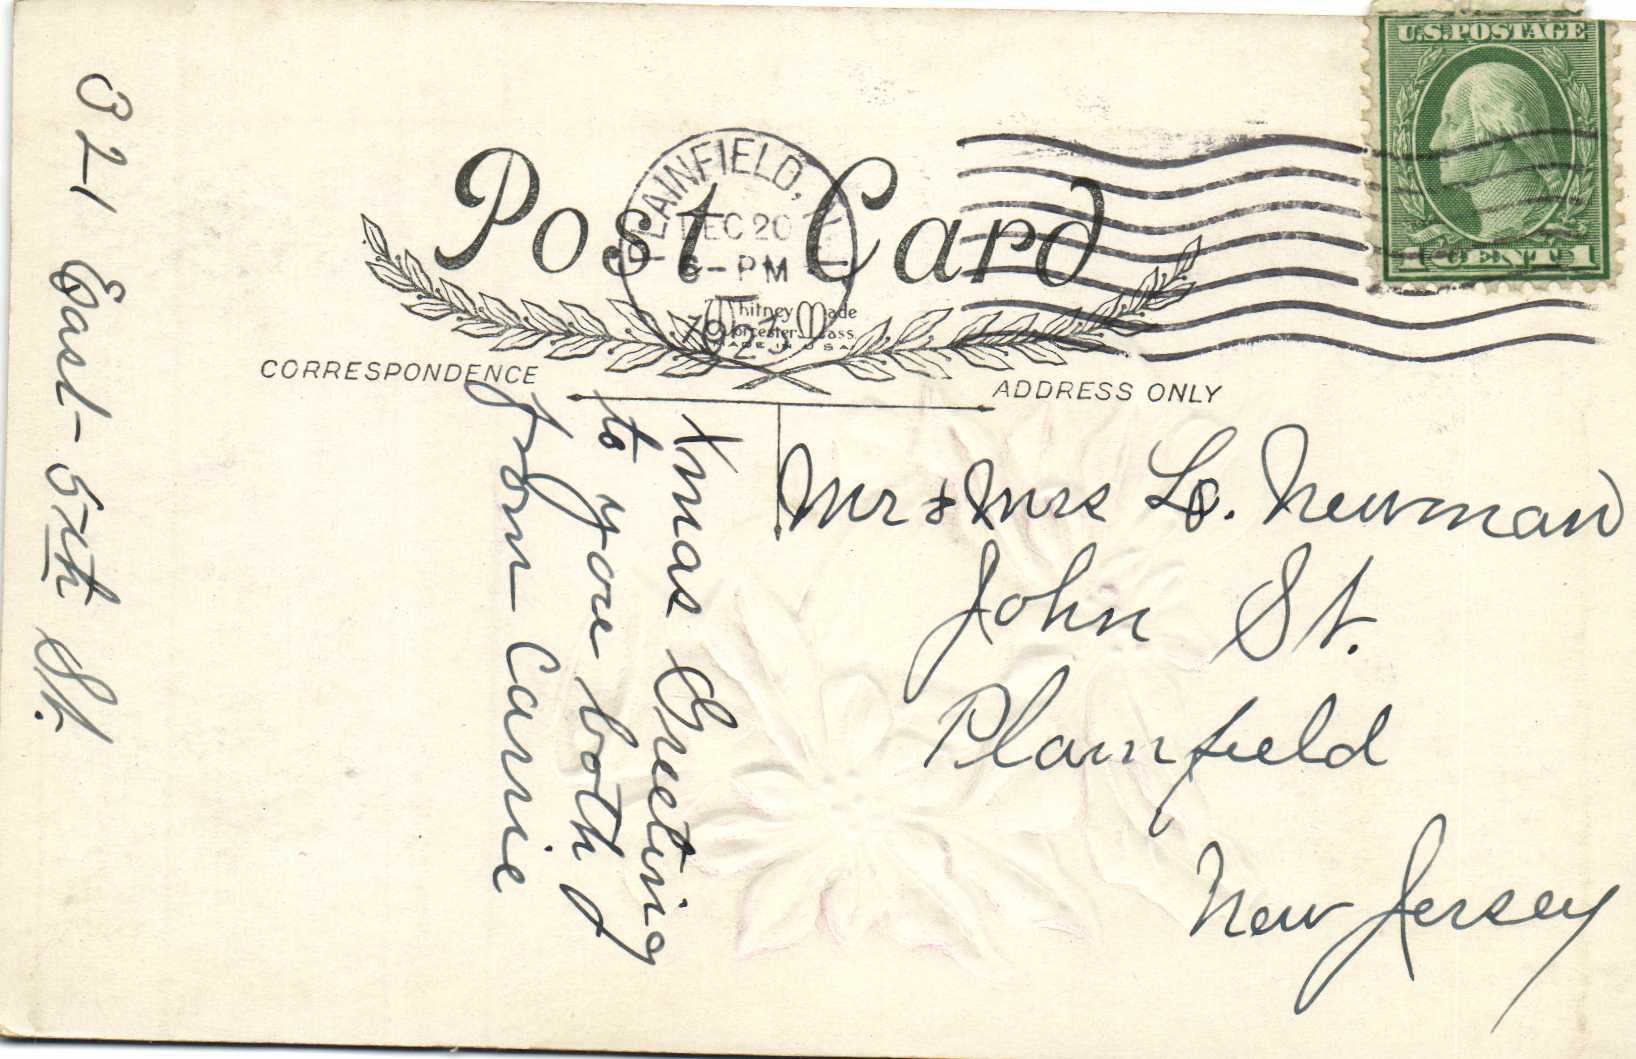 U.S. POSTAGE
1 CENT 1
PLAINFIELD,
DEC 20
6-PM
192
Post Card
Whitney Made
Worcester, Mass
MADE IN U S A
CORRESPONDENCE
ADDRESS ONLY
321 East - 5th St.
Xmas Greeting
to you both
from Carrie
Mr & Mrs L. Newman
John St.
Plainfield
New Jersey